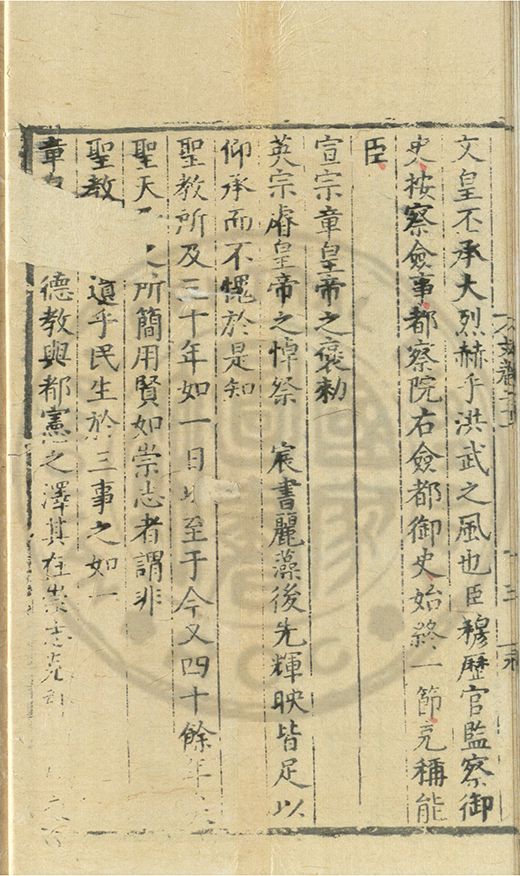 文皇丕承大烈赫乎洪武之風也臣穆歷官監察御
史按察僉事都察院右僉都御史始終一節克稱能
臣
宣宗章皇帝之褒勅
英宗睿皇帝之悼祭 宸書麗藻後先輝映皆足以
仰承而不愧於是知
聖教所及三十年如一日以至于今又四十餘年
聖天 之所簡用賢如崇志者謂非
聖教 道乎民生於三事之如一
章 德教與都憲之澤其在崇志